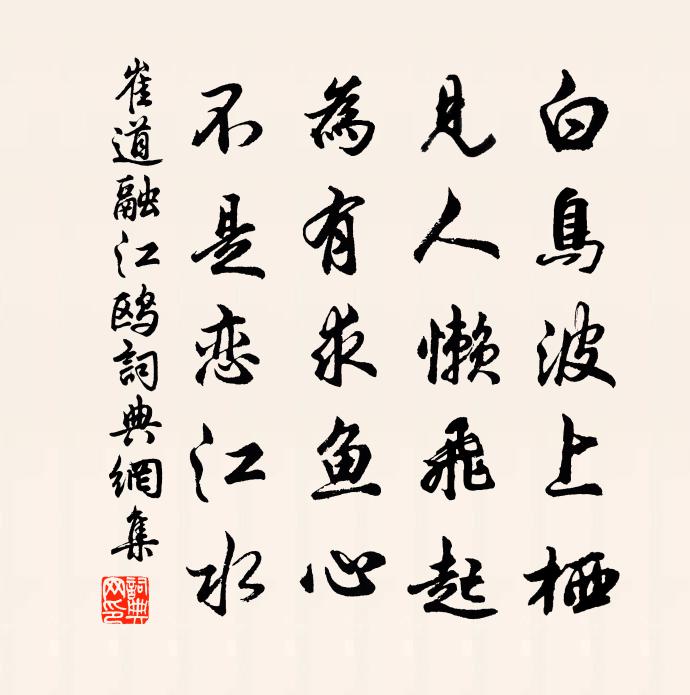 白鳥波上栖
見人懶飛起
為有求鱼心
不是恋江水
崔道融江鸥詞典網集
詞典网印